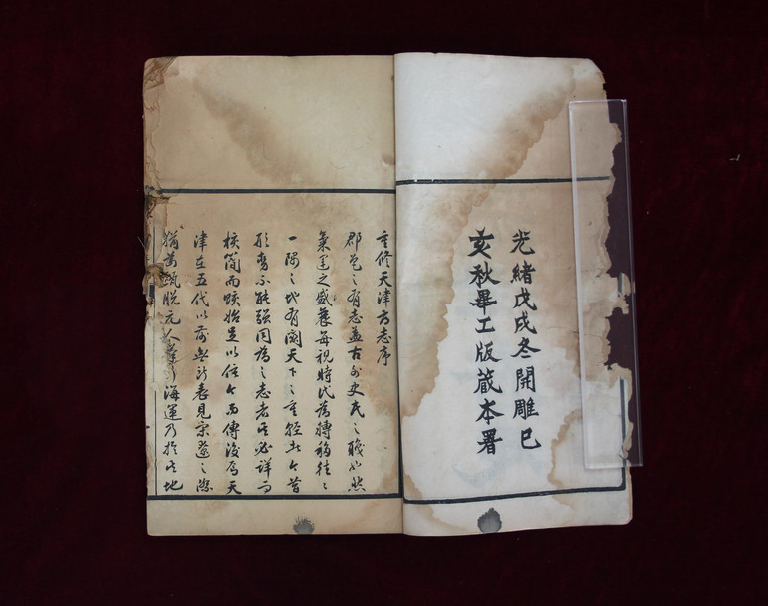 光緒戊戌冬開雕已
亥秋畢工版藏本署
重修天津府志序
郡邑之有志蓋古外史氏之職也然
氣運之盛衰每視時代為轉移往往
一隅之地有關天下之重輕此今昔
形勢不能強同為之志者必詳而
核簡而賅始足以信今而傳後焉天
津在五代以前無所表見宋遼之際
猶甌脫元人 海運乃於其地